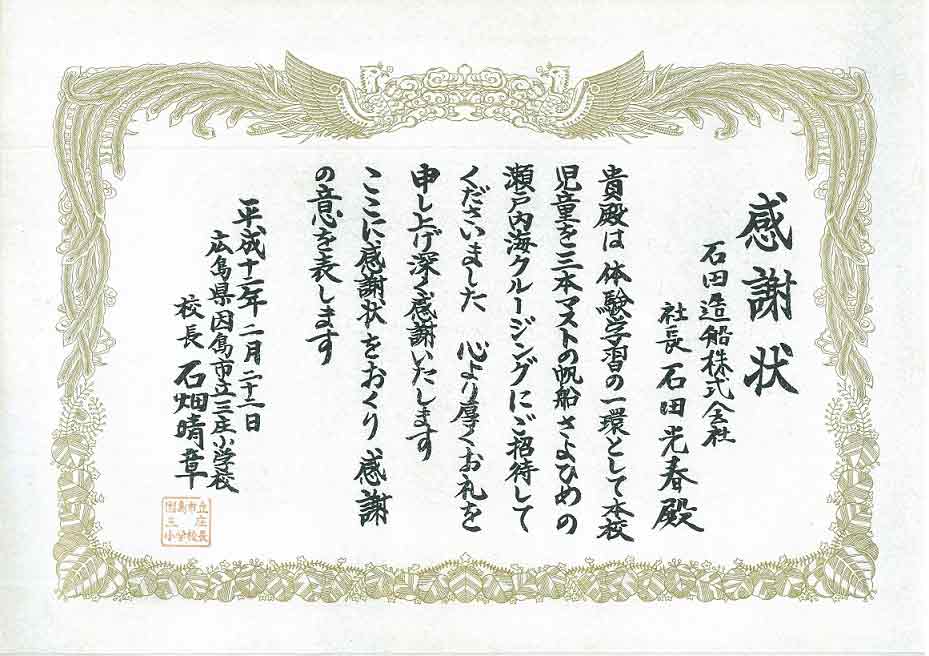 感謝状
石田造船株式会社
社長 石田光春殿
貴殿は 体験学習の一環として本校
児童を三本マストの帆船さよひめの
瀬戸内海クルージングにご招待して
くださいました 心より厚くお礼を
申し上げ深く感謝いたします
ここに感謝状をおくり 感謝
の意を表します
平成十二年 二月二十二日
広島県因島市立三庄小学校
校長 石畑晴章
因島市立
三庄
小学校長